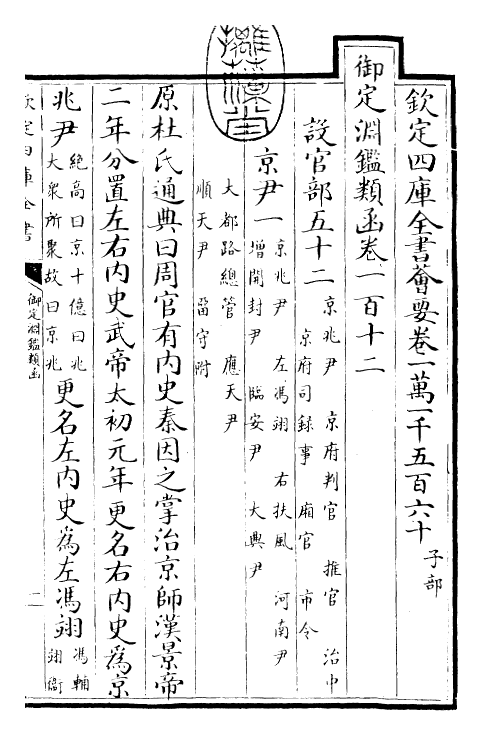 摛藻堂
欽定四庫全書薈要卷一萬一千五百六十 子部
御定淵鑑類函卷一百十二
設官部五十二
京兆尹 京府判官 推官 治中
京府司録事 廂官 市令
京尹一
京兆尹 左馮翊 右扶風 河南尹
增開封尹 臨安尹 大興尹
大都路總管 應天尹
順天尹 留守附
原杜氏通典曰周官有内史秦因之掌治京師漢景帝
二年分置左右内史武帝太初元年更名右内史為京
兆尹
絶高曰京十億曰兆
大衆所聚故曰京兆
更名左内史為左馮翊
馮輔
翊衞
欽定四庫全書
御定淵鑑類函